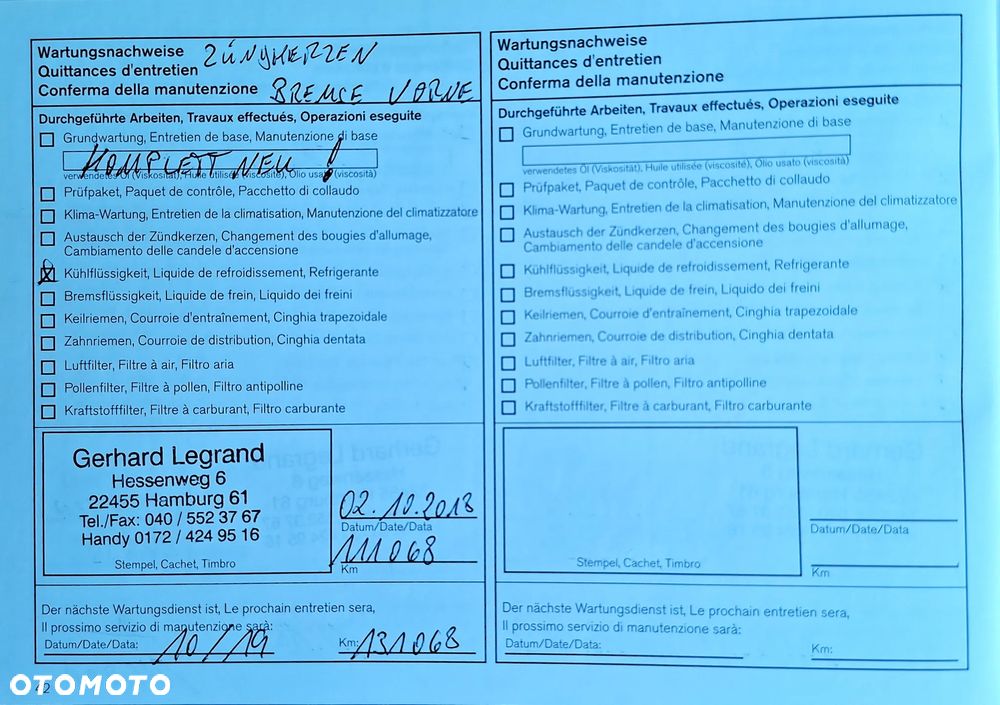 Wartungsnachweise ZÜNGKERZEN
Quittances d'entretien
Conferma della manutenzione BREMSE VORNE
Durchgeführte Arbeiten, Travaux effectués, Operazioni eseguite
Grundwartung, Entretien de base, Manutenzione di base
KOMPLETT NEU !
verwendetes Öl (Viskosität), Huile utilisée (viscosité), Olio usato (viscosità)
Prüfpaket, Paquet de contrôle, Pacchetto di collaudo
Klima-Wartung, Entretien de la climatisation, Manutenzione del climatizzatore
Austausch der Zündkerzen, Changement des bougies d'allumage,
Cambiamento delle candele d'accensione
Kühlflüssigkeit, Liquide de refroidissement, Refrigerante
Bremsflüssigkeit, Liquide de frein, Liquido dei freini
Keilriemen, Courroie d'entraînement, Cinghia trapezoidale
Zahnriemen, Courroie de distribution, Cinghia dentata
Luftfilter, Filtre à air, Filtro aria
Pollenfilter, Filtre à pollen, Filtro antipolline
Kraftstofffilter, Filtre à carburant, Filtro carburante
Gerhard Legrand
Hessenweg 6
22455 Hamburg 61
Tel./Fax: 040 / 552 37 67
Handy 0172 / 424 95 16
Stempel, Cachet, Timbro
02.10.2018
Datum/Date/Data
111068
Km
Der nächste Wartungsdienst ist, Le prochain entretien sera,
Il prossimo servizio di manutenzione sarà:
Datum/Date/Data: 10/19 Km: 131068
42
Wartungsnachweise
Quittances d'entretien
Conferma della manutenzione
Durchgeführte Arbeiten, Travaux effectués, Operazioni eseguite
Grundwartung, Entretien de base, Manutenzione di base
verwendetes Öl (Viskosität), Huile utilisée (viscosité), Olio usato (viscosità)
Prüfpaket, Paquet de contrôle, Pacchetto di collaudo
Klima-Wartung, Entretien de la climatisation, Manutenzione del climatizzatore
Austausch der Zündkerzen, Changement des bougies d'allumage,
Cambiamento delle candele d'accensione
Kühlflüssigkeit, Liquide de refroidissement, Refrigerante
Bremsflüssigkeit, Liquide de frein, Liquido dei freini
Keilriemen, Courroie d'entraînement, Cinghia trapezoidale
Zahnriemen, Courroie de distribution, Cinghia dentata
Luftfilter, Filtre à air, Filtro aria
Pollenfilter, Filtre à pollen, Filtro antipolline
Kraftstofffilter, Filtre à carburant, Filtro carburante
Stempel, Cachet, Timbro
Datum/Date/Data
Km
Der nächste Wartungsdienst ist, Le prochain entretien sera,
Il prossimo servizio di manutenzione sarà:
Datum/Date/Data: Km:
OTOMOTO